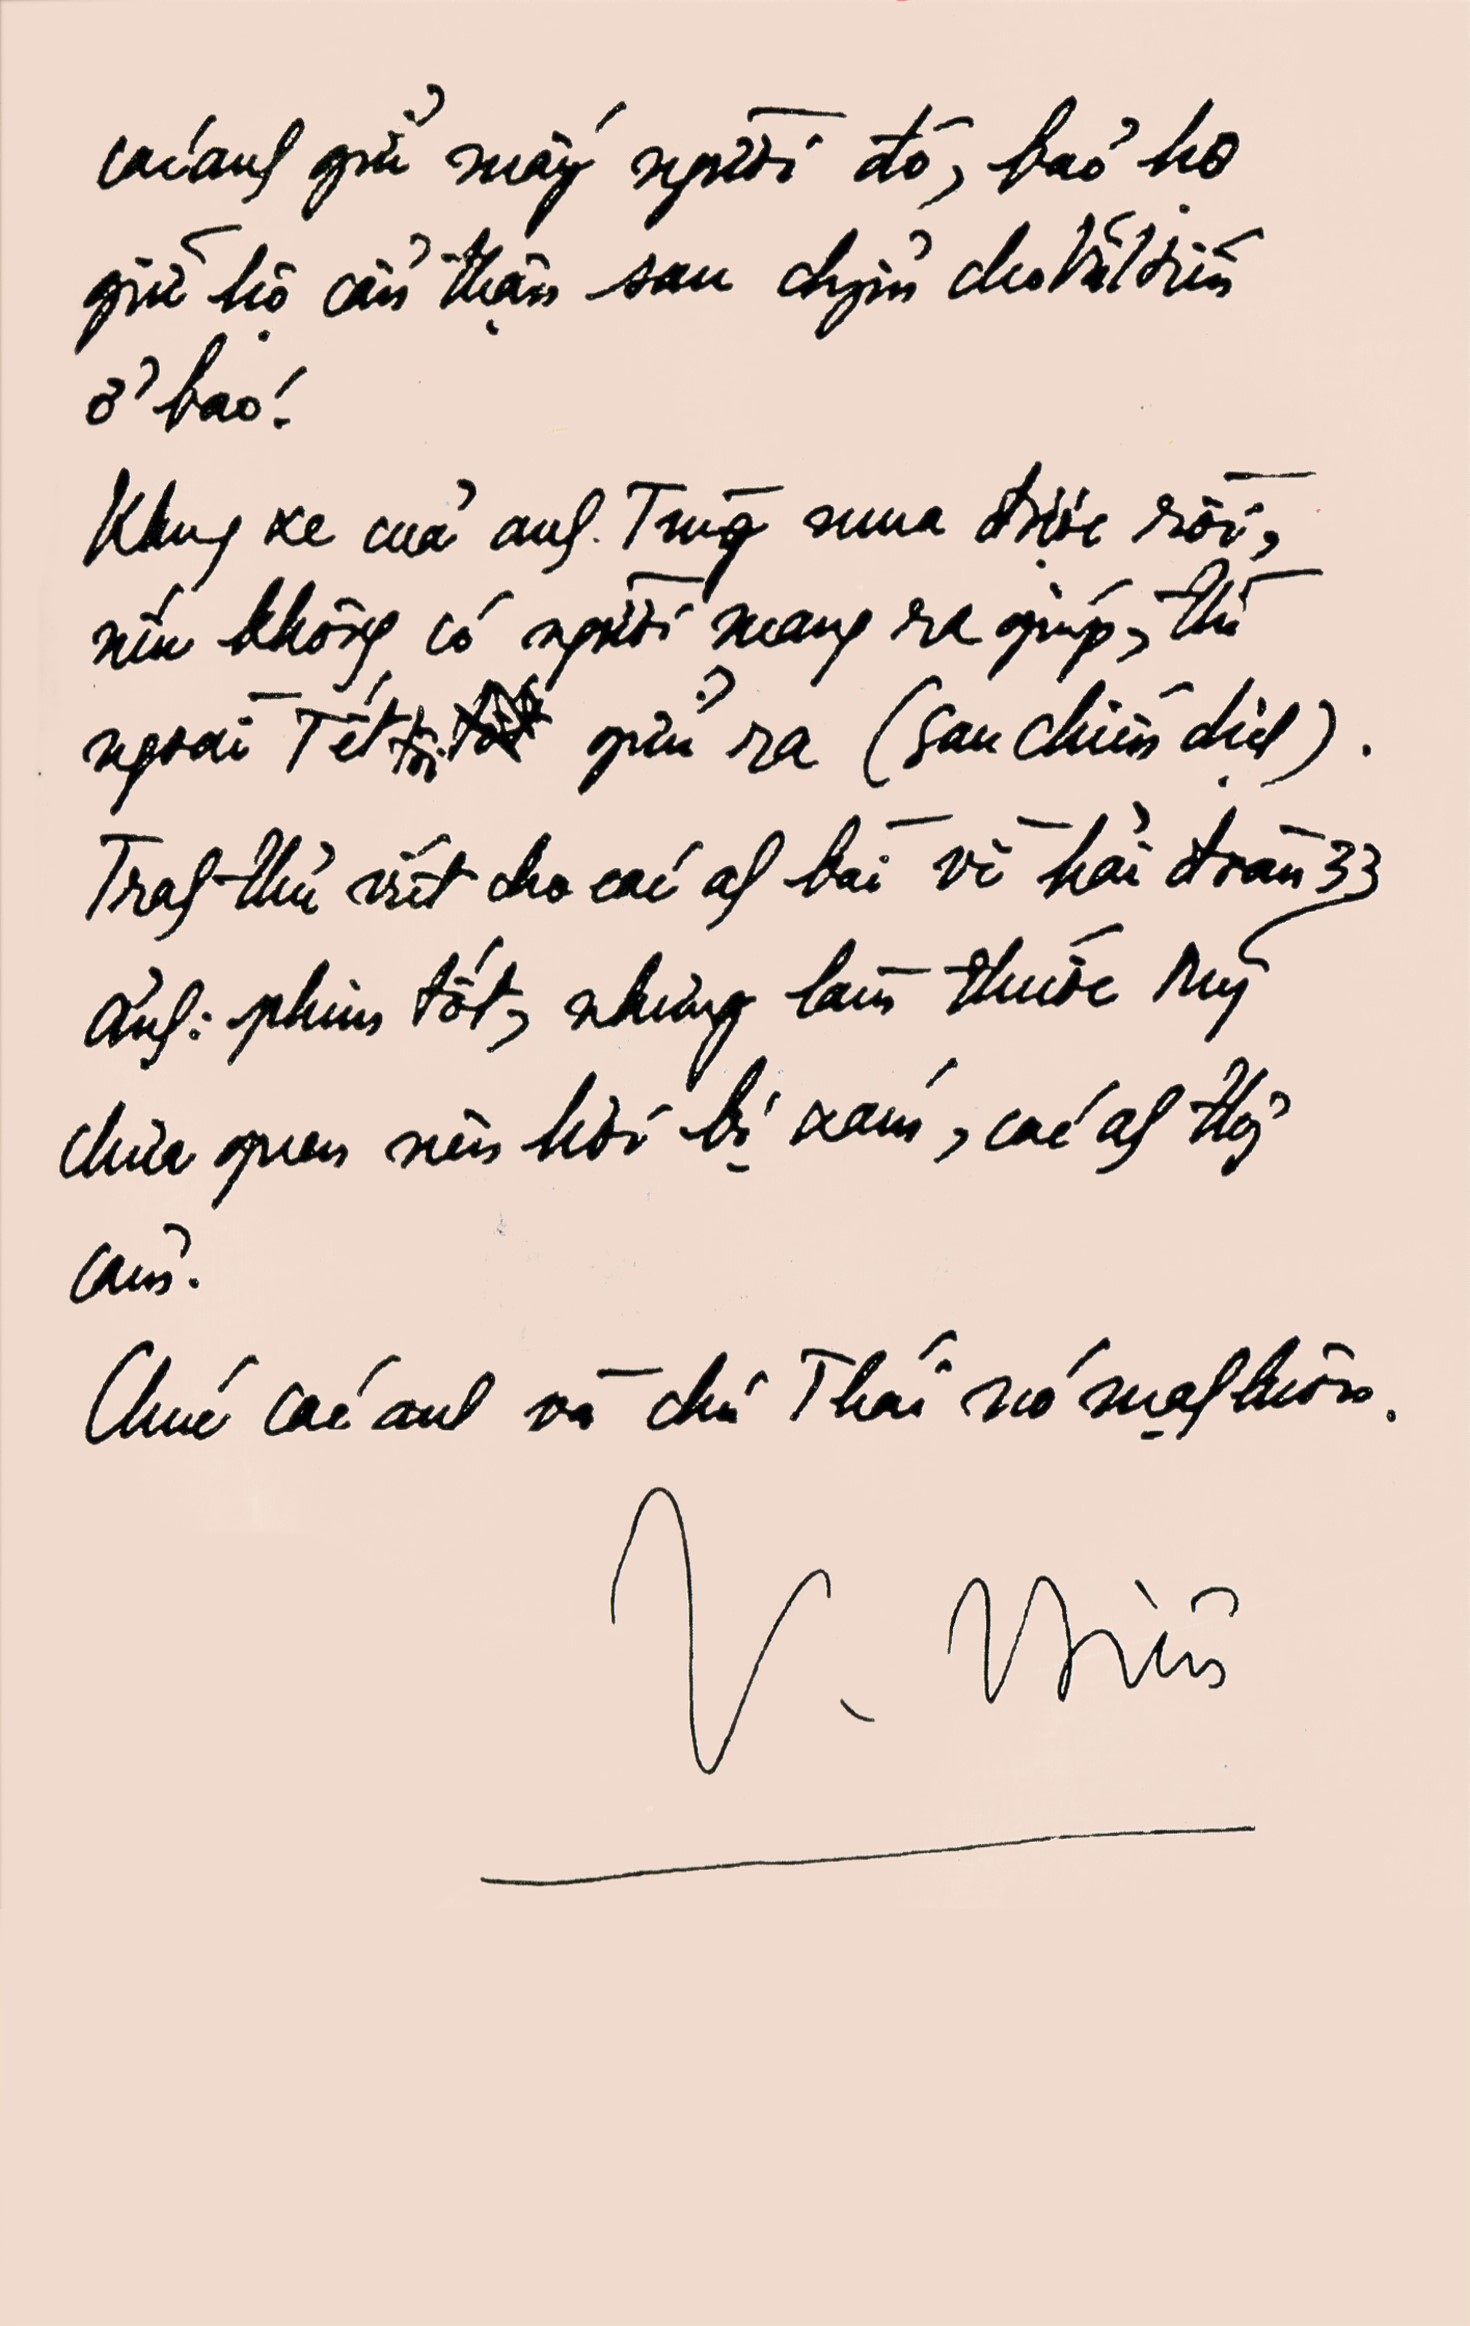 các anh gửi mấy người đó, bảo họ
giữ hộ cẩn thận sau chuyển cho
ở báo.
Khung xe của anh Trung mua được rồi,
nếu không có người mang ra giúp, thì
ngoài Tết tôi gửi ra (sau chiến dịch).
Tranh thủ viết cho các ah bài về hải đoàn 33
Ảnh: phim tốt, nhưng làm thuốc Mỹ
chưa quen nên hơi bị xám, các ah thông
cảm.
Chúc các anh và chú Thái nó mạnh khỏe.
V.